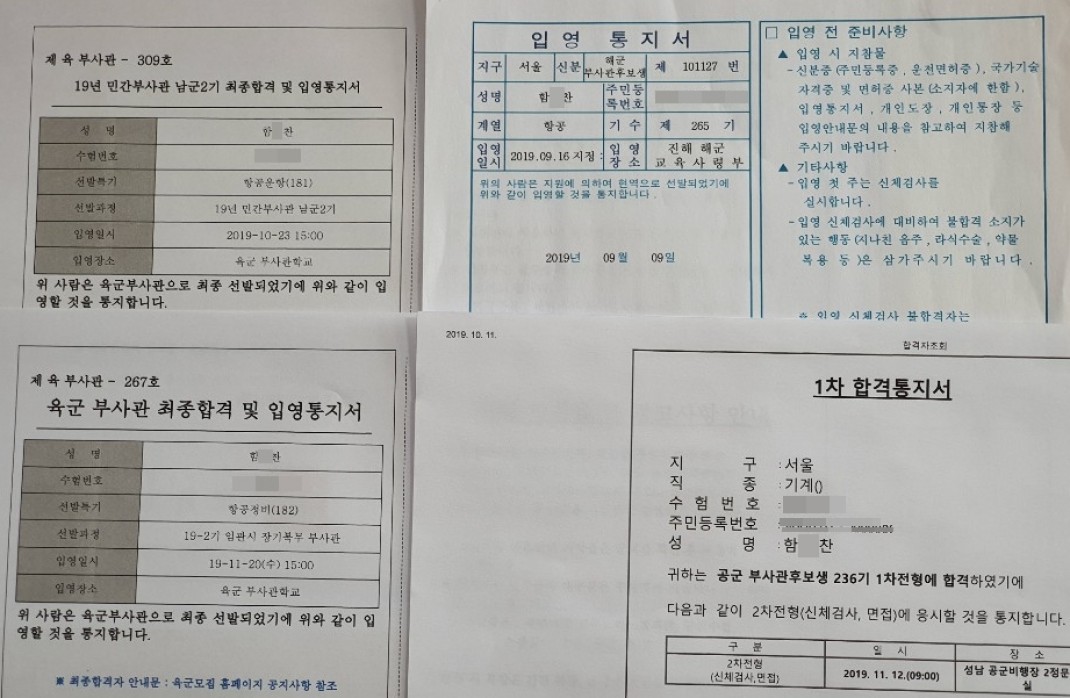 제 육 부사관 - 309호
19년 민간부사관 남군2기 최종합격 및 입영통지서
성 명 함 찬
수험번호
선발특기 항공운항(181)
선발과정 19년 민간부사관 남군2기
입영일시 2019-10-23 15:00
입영장소 육군 부사관학교
위 사람은 육군부사관으로 최종 선발되었기에 위와 같이 입
영할 것을 통지합니다.
입 영 통 지 서
지구 서울 신분 해군 부사관후보생 제 101127 번
성명 함 찬 주민등록번호
계열 항공 기 수 제 265 기
입영일시 2019.09.16 지정: 입영장소 진해 해군 교육사령부
위의 사람은 지원에 의하여 현역으로 선발되었기에
위와 같이 입영할 것을 통지합니다.
2019년 09월 09일
□ 입영 전 준비사항
▲ 입영 시 지참물
- 신분증(주민등록증, 운전면허증), 국가기술
자격증 및 면허증 사본(소지자에 한함),
입영통지서, 개인도장, 개인통장 등
입영안내문의 내용을 참고하여 지참해
주시기 바랍니다.
▲ 기타사항
- 입영 첫 주는 신체검사를
실시합니다.
- 입영 신체검사에 대비하여 불합격 소지가
있는 행동(지나친 음주, 라식수술, 약물
복용 등)은 삼가주시기 바랍니다.
※ 입영 신체검사 불합격자는
제 육 부사관 - 267호
육군 부사관 최종합격 및 입영통지서
성 명 함 찬
수험번호
선발특기 항공정비(182)
선발과정 19-2기 임관시 장기복무 부사관
입영일시 19-11-20(수) 15:00
입영장소 육군 부사관학교
위 사람은 육군부사관으로 최종 선발되었기에 위와 같이 입
영할 것을 통지합니다.
※ 최종합격자 안내문 : 육군모집 홈페이지 공지사항 참조
2019. 10. 11.
합격자조회
1차 합격통지서
지 구 : 서울
직 종 : 기계()
수 험 번 호 :
주민등록번호 :
성 명 : 함 찬
귀하는 공군 부사관후보생 236기 1차전형에 합격하였기에
다음과 같이 2차전형(신체검사, 면접)에 응시할 것을 통지합니다.
구 분 일 시 장 소
2차전형 (신체검사,면접) 2019. 11. 12.(09:00) 성남 공군비행장 2정문 실